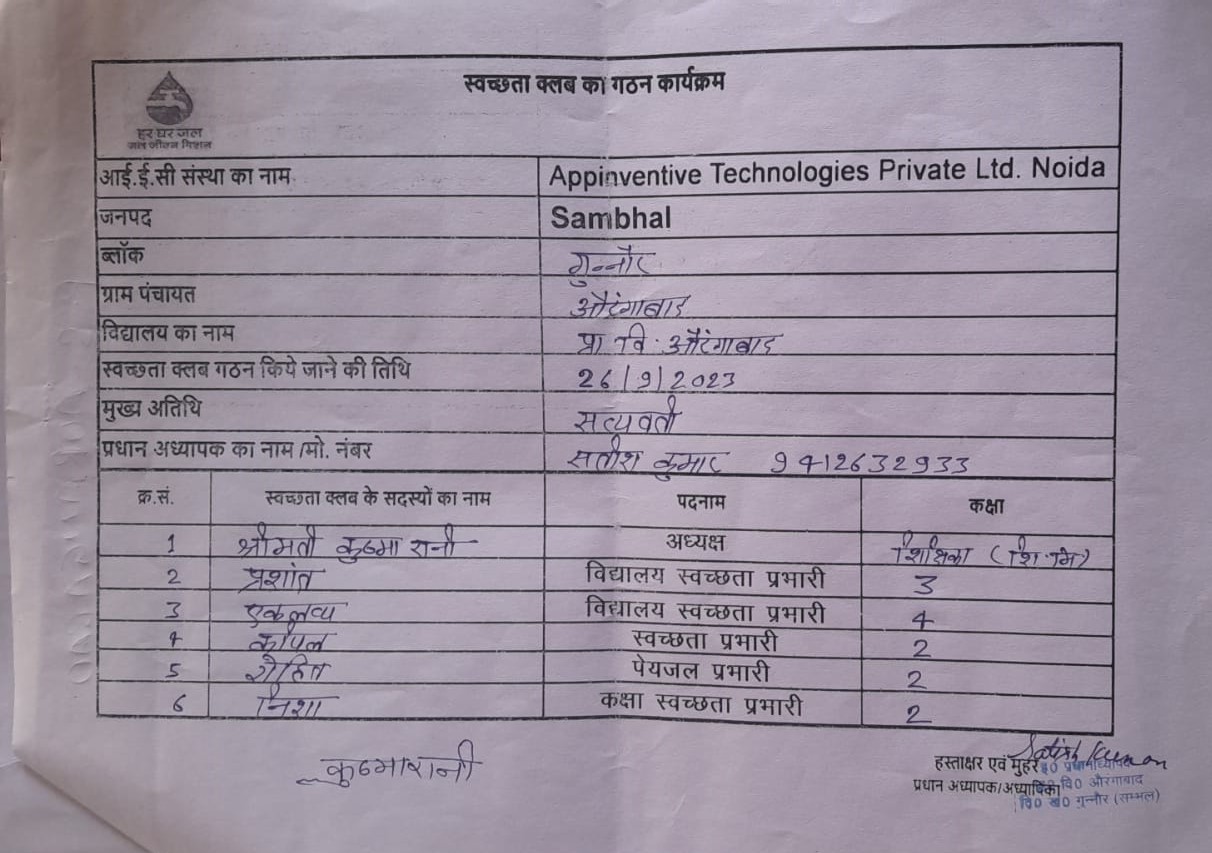 स्वच्छता क्लब का गठन कार्यक्रम
हर घर जल
जल जीवन मिशन
आई.ई.सी संस्था का नाम Appinventive Technologies Private Ltd. Noida
जनपद Sambhal
ब्लॉक गुन्नौर
ग्राम पंचायत औरंगाबाद
विद्यालय का नाम प्रा वि. औरंगाबाद
स्वच्छता क्लब गठन किये जाने की तिथि 26/9/2023
मुख्य अतिथि सत्यवती
प्रधान अध्यापक का नाम /मो. नंबर सतीश कुमार 9412632933
क्र.सं. स्वच्छता क्लब के सदस्यों का नाम पदनाम कक्षा
1 श्रीमती रानी अध्यक्ष शिक्षिका (शि.मि)
2 प्रशांत विद्यालय स्वच्छता प्रभारी 3
3 एकलव्य विद्यालय स्वच्छता प्रभारी 4
4 कपिल स्वच्छता प्रभारी 2
5 रोहित पेयजल प्रभारी 2
6 निशा कक्षा स्वच्छता प्रभारी 2
Satish Kumar
हस्ताक्षर एवं मुहर इ0 प्रधानाध्यापक
प्रधान अध्यापक/अध्यापिका वि0 औरंगाबाद
वि0 ख0 गुन्नौर (सम्भल)